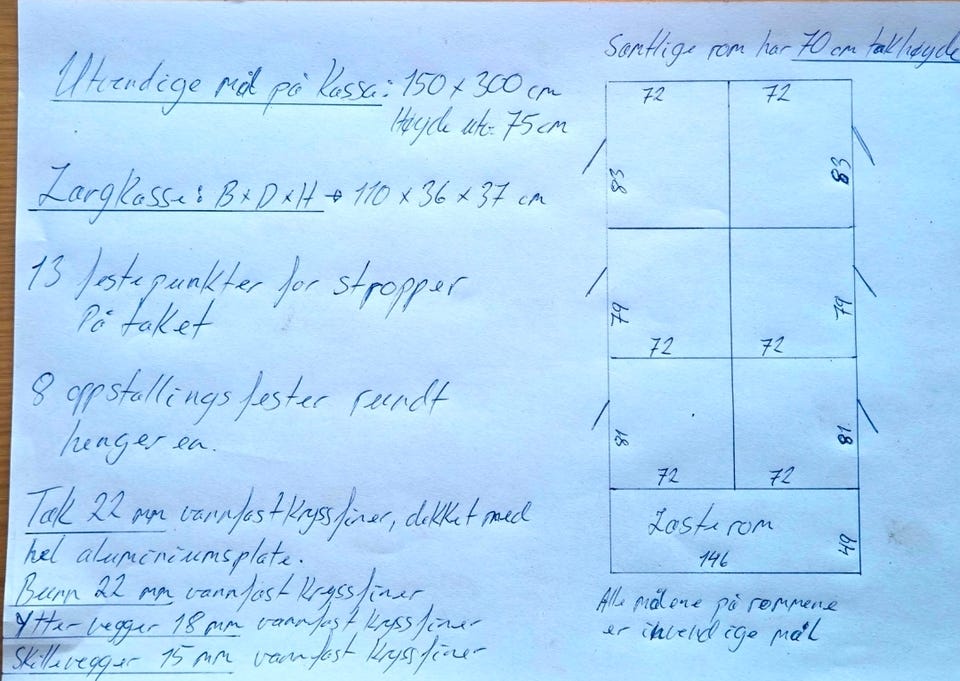 Utvendige mål på Kassa: 150 x 300 cm
Høyde utv: 75 cm
B x D x H → 110 x 36 x 37 cm
13 festepunkter for stropper
På taket
8 oppstallingsfester rundt
hengeren.
Tak 22 mm vannfast Kryssfiner, dekket med
hel aluminiumsplate.
Bunn 22 mm vannfast Kryssfiner
Ytter vegger 18 mm vannfast Kryssfiner
Skillevegger 15 mm vannfast Kryssfiner
Samtlige rom har 70 cm takhøyde
72 72
83 83
79 79
72 72
81 81
72 72
Lasterom
146
49
Alle målene på rommene
er invendige mål